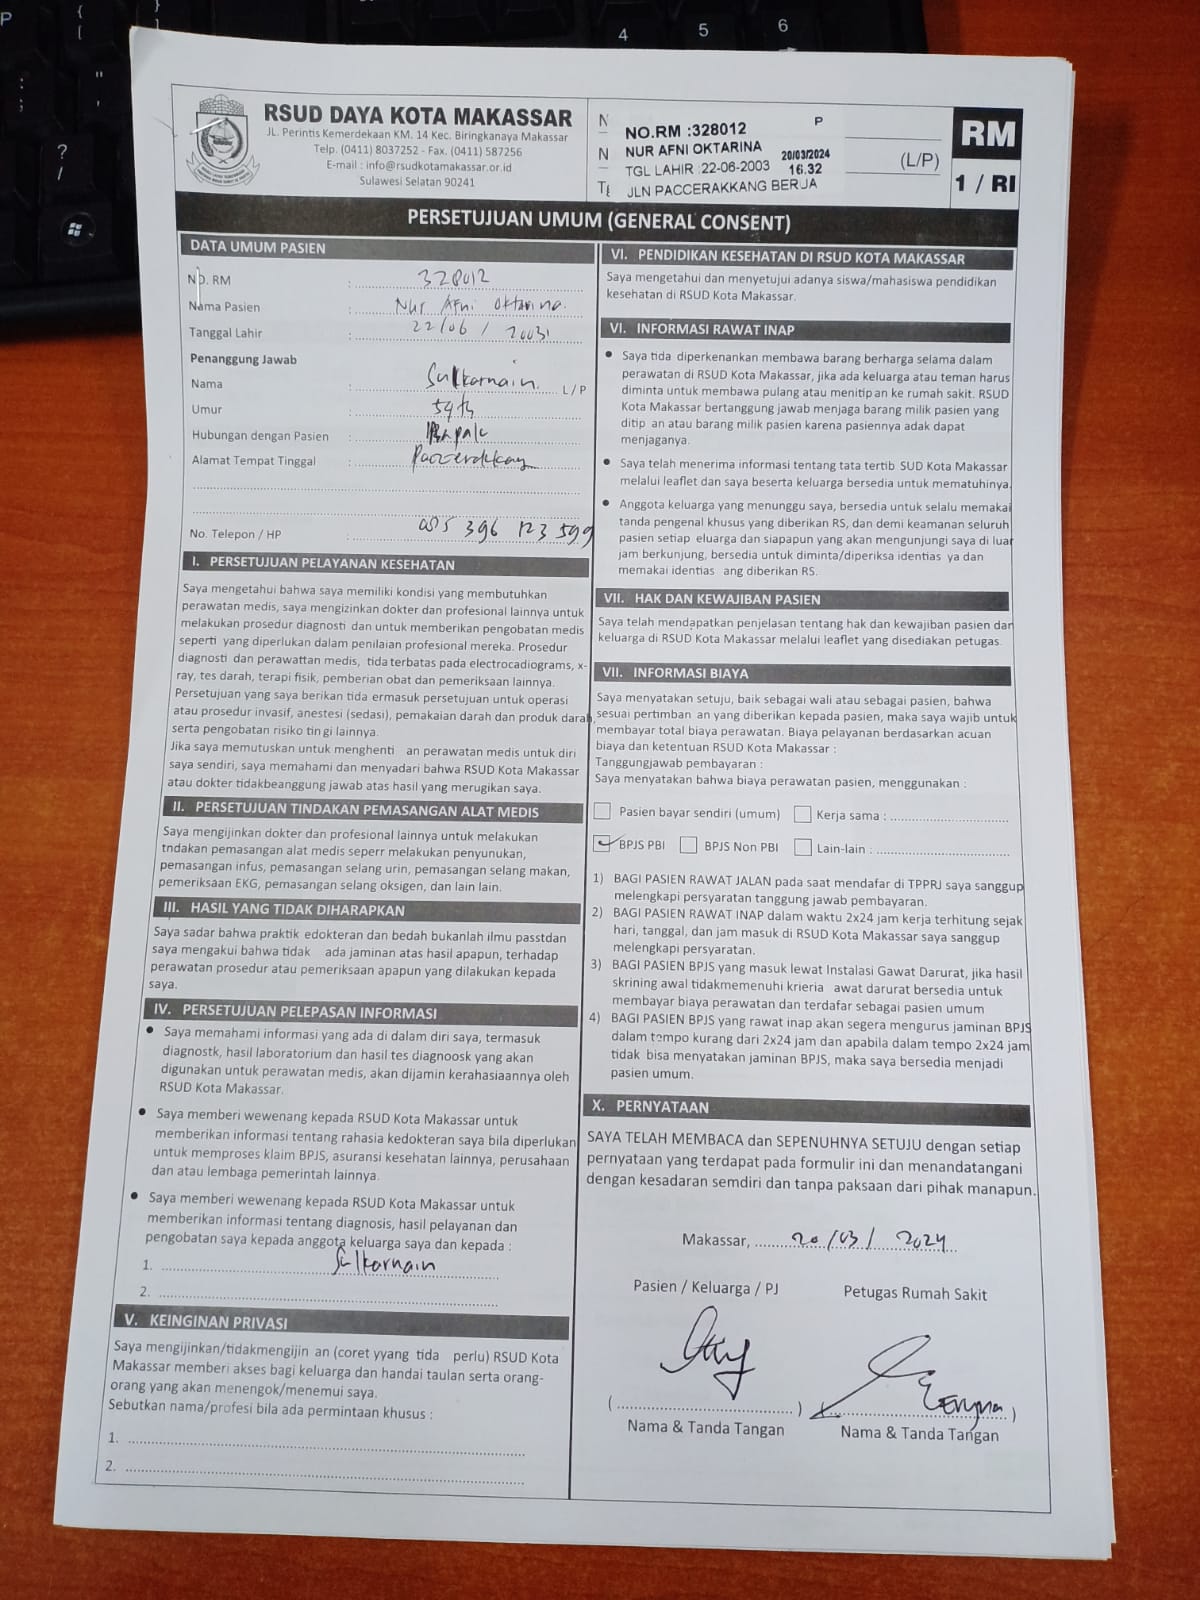 RSUD DAYA KOTA MAKASSAR
JL. Perintis Kemerdekaan KM. 14 Kec. Biringkanaya Makassar
Telp. (0411) 8037252 - Fax. (0411) 587256
E-mail : info@rsudkotamakassar.or.id
Sulawesi Selatan 90241
NO.RM :328012 P
NUR AFNI OKTARINA 20/03/2024
TGL LAHIR :22-06-2003 16.32
JLN PACCERAKKANG BERJA
(L/P)
RM
1 / RI
PERSETUJUAN UMUM (GENERAL CONSENT)
DATA UMUM PASIEN
No. RM : 328012
Nama Pasien : Nur Afni Oktarina.
Tanggal Lahir : 22/06 / 2003
Penanggung Jawab
Nama : Sulkarnain. L / P
Umur : 59 th
Hubungan dengan Pasien :
Alamat Tempat Tinggal :
No. Telepon / HP : 085 396 123 599
I. PERSETUJUAN PELAYANAN KESEHATAN
Saya mengetahui bahwa saya memiliki kondisi yang membutuhkan
perawatan medis, saya mengizinkan dokter dan profesional lainnya untuk
melakukan prosedur diagnosti dan untuk memberikan pengobatan medis
seperti yang diperlukan dalam penilaian profesional mereka. Prosedur
diagnosti dan perawattan medis, tida terbatas pada electrocadiograms, x-
ray, tes darah, terapi fisik, pemberian obat dan pemeriksaan lainnya.
Persetujuan yang saya berikan tida ermasuk persetujuan untuk operasi
atau prosedur invasif, anestesi (sedasi), pemakaian darah dan produk darah,
serta pengobatan risiko tin gi lainnya.
Jika saya memutuskan untuk menghenti an perawatan medis untuk diri
saya sendiri, saya memahami dan menyadari bahwa RSUD Kota Makassar
atau dokter tidakbeanggung jawab atas hasil yang merugikan saya.
II. PERSETUJUAN TINDAKAN PEMASANGAN ALAT MEDIS
Saya mengijinkan dokter dan profesional lainnya untuk melakukan
tndakan pemasangan alat medis seperr melakukan penyunukan,
pemasangan infus, pemasangan selang urin, pemasangan selang makan,
pemeriksaan EKG, pemasangan selang oksigen, dan lain lain.
III. HASIL YANG TIDAK DIHARAPKAN
Saya sadar bahwa praktik edokteran dan bedah bukanlah ilmu passtdan
saya mengakui bahwa tidak ada jaminan atas hasil apapun, terhadap
perawatan prosedur atau pemeriksaan apapun yang dilakukan kepada
saya.
IV. PERSETUJUAN PELEPASAN INFORMASI
• Saya memahami informasi yang ada di dalam diri saya, termasuk
diagnostk, hasil laboratorium dan hasil tes diagnoosk yang akan
digunakan untuk perawatan medis, akan dijamin kerahasiaannya oleh
RSUD Kota Makassar.
• Saya memberi wewenang kepada RSUD Kota Makassar untuk
memberikan informasi tentang rahasia kedokteran saya bila diperlukan
untuk memproses klaim BPJS, asuransi kesehatan lainnya, perusahaan
dan atau lembaga pemerintah lainnya.
• Saya memberi wewenang kepada RSUD Kota Makassar untuk
memberikan informasi tentang diagnosis, hasil pelayanan dan
pengobatan saya kepada anggota keluarga saya dan kepada :
1. Sulkarnain
2.
V. KEINGINAN PRIVASI
Saya mengijinkan/tidakmengijin an (coret yyang tida perlu) RSUD Kota
Makassar memberi akses bagi keluarga dan handai taulan serta orang-
orang yang akan menengok/menemui saya.
Sebutkan nama/profesi bila ada permintaan khusus :
1.
2.
VI. PENDIDIKAN KESEHATAN DI RSUD KOTA MAKASSAR
Saya mengetahui dan menyetujui adanya siswa/mahasiswa pendidikan
kesehatan di RSUD Kota Makassar.
VI. INFORMASI RAWAT INAP
• Saya tida diperkenankan membawa barang berharga selama dalam
perawatan di RSUD Kota Makassar, jika ada keluarga atau teman harus
diminta untuk membawa pulang atau menitip an ke rumah sakit. RSUD
Kota Makassar bertanggung jawab menjaga barang milik pasien yang
ditip an atau barang milik pasien karena pasiennya adak dapat
menjaganya.
• Saya telah menerima informasi tentang tata tertib SUD Kota Makassar
melalui leaflet dan saya beserta keluarga bersedia untuk mematuhinya.
• Anggota keluarga yang menunggu saya, bersedia untuk selalu memakai
tanda pengenal khusus yang diberikan RS, dan demi keamanan seluruh
pasien setiap eluarga dan siapapun yang akan mengunjungi saya di luar
jam berkunjung, bersedia untuk diminta/diperiksa identias ya dan
memakai identias ang diberikan RS.
VII. HAK DAN KEWAJIBAN PASIEN
Saya telah mendapatkan penjelasan tentang hak dan kewajiban pasien dan
keluarga di RSUD Kota Makassar melalui leaflet yang disediakan petugas.
VII. INFORMASI BIAYA
Saya menyatakan setuju, baik sebagai wali atau sebagai pasien, bahwa
sesuai pertimban an yang diberikan kepada pasien, maka saya wajib untuk
membayar total biaya perawatan. Biaya pelayanan berdasarkan acuan
biaya dan ketentuan RSUD Kota Makassar :
Tanggungjawab pembayaran :
Saya menyatakan bahwa biaya perawatan pasien, menggunakan :
Pasien bayar sendiri (umum) Kerja sama :
BPJS PBI BPJS Non PBI Lain-lain :
1) BAGI PASIEN RAWAT JALAN pada saat mendafar di TPPRJ saya sanggup
melengkapi persyaratan tanggung jawab pembayaran.
2) BAGI PASIEN RAWAT INAP dalam waktu 2x24 jam kerja terhitung sejak
hari, tanggal, dan jam masuk di RSUD Kota Makassar saya sanggup
melengkapi persyaratan.
3) BAGI PASIEN BPJS yang masuk lewat Instalasi Gawat Darurat, jika hasil
skrining awal tidakmemenuhi krieria awat darurat bersedia untuk
membayar biaya perawatan dan terdafar sebagai pasien umum
4) BAGI PASIEN BPJS yang rawat inap akan segera mengurus jaminan BPJS
dalam tempo kurang dari 2x24 jam dan apabila dalam tempo 2x24 jam
tidak bisa menyatakan jaminan BPJS, maka saya bersedia menjadi
pasien umum.
X. PERNYATAAN
SAYA TELAH MEMBACA dan SEPENUHNYA SETUJU dengan setiap
pernyataan yang terdapat pada formulir ini dan menandatangani
dengan kesadaran semdiri dan tanpa paksaan dari pihak manapun.
Makassar, 20/03/ 2024
Pasien / Keluarga / PJ Petugas Rumah Sakit
Nama & Tanda Tangan Nama & Tanda Tangan